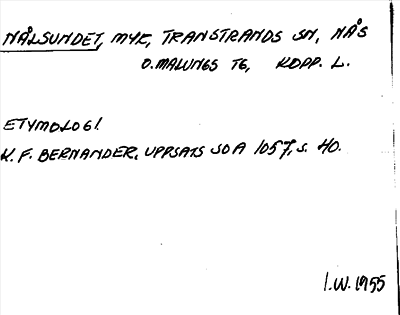 NÅLSUNDET, MYR, TRANSTRANDS SN, NÅS
O. MALUNGS TG, KOPP. L.
ETYMOLOGI.
K. F. BERNANDER, UPPSATS SOA 1057, S. 40.
I.W. 1955